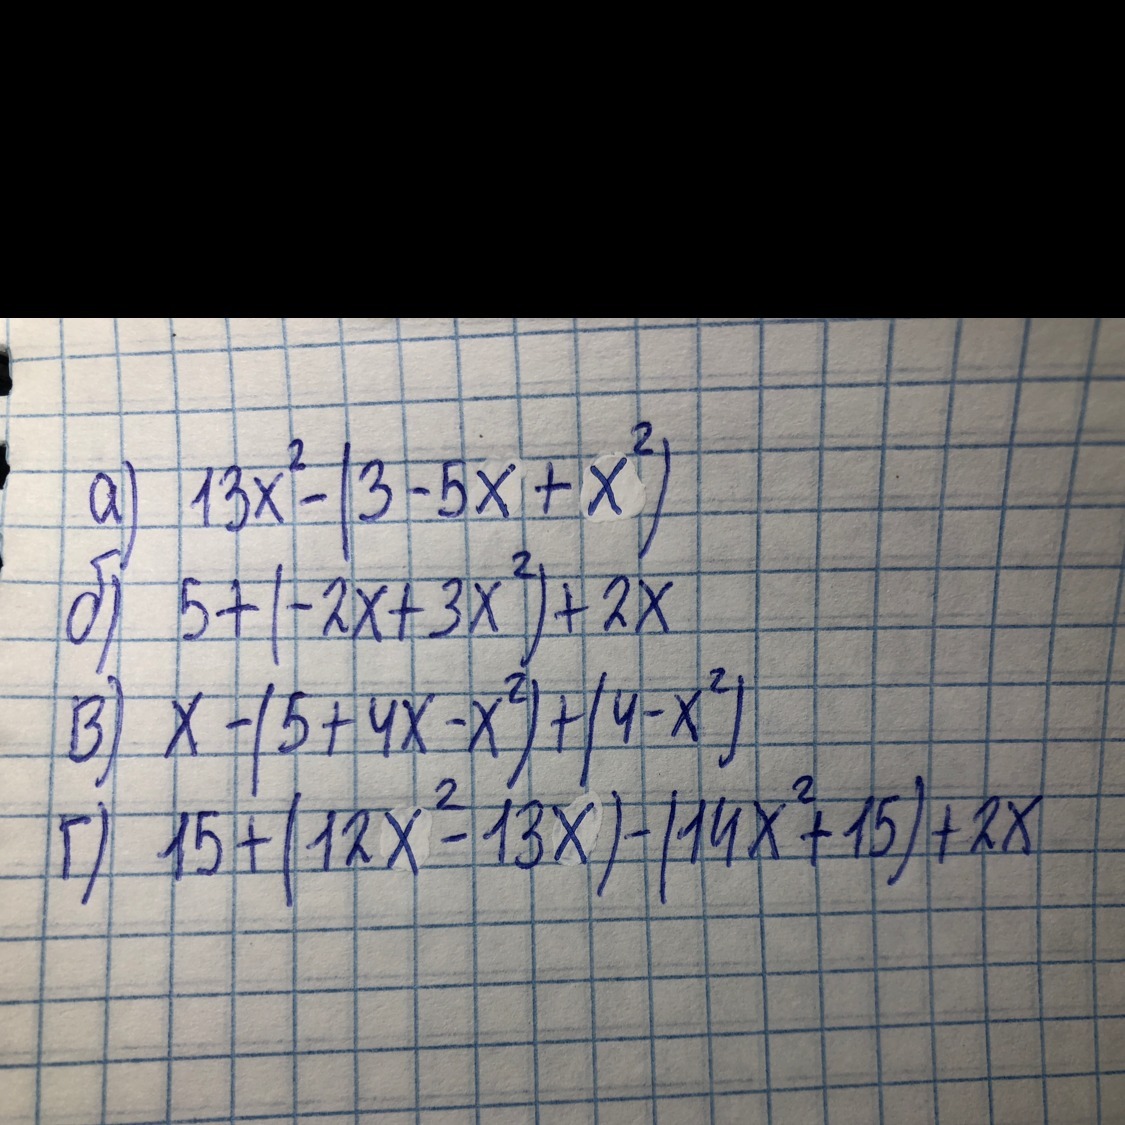 а) 13x² - (3 - 5x + x²)
б) 5 + (-2x + 3x²) + 2x
в) x - (5 + 4x - x²) + (4 - x²)
г) 15 + (12x² - 13x) - (14x² + 15) + 2x